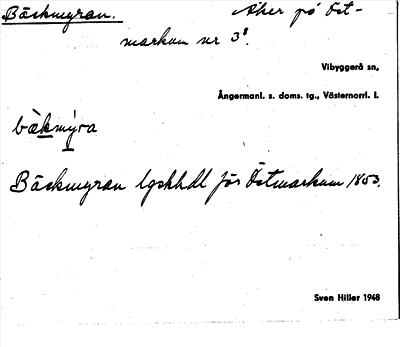 Bäckmyran. Åker på Öst-
markum nr 3⁸.
Vibyggerå sn,
Ångermanl. s. doms. tg., Västernorrl. l.
bàkmýra
Bäckmyran lgskhdl för Östmarkum 1853.
Sven Hiller 1948